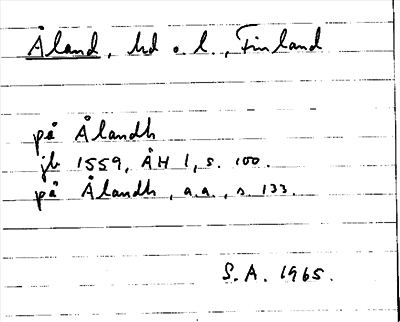 Åland, hd o. l., Finland
på Ålandh
jb 1559, ÅH 1, s. 100.
på Ålandh, a.a., s. 133.
S.A. 1965.